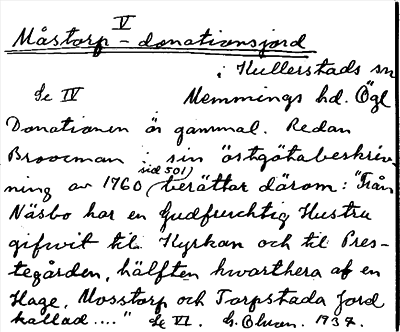 V
Måstorp - donationsjord
i Kullerstads sn
Se IV Memmings hd. Ögl
Donationen är gammal. Redan
Broocman i sin östgötabeskriv-
sid 501)
ning av 1760 (berättar därom: "Från
Näsbo har en Gudfruchtig Hustru
gifwit til Kyrkan och til Pres-
tegården, hälften hwarthera af en
Hage, Mosstorp och Torpstada Jord
kallad...." Se VI. G. Ohson. 1934.